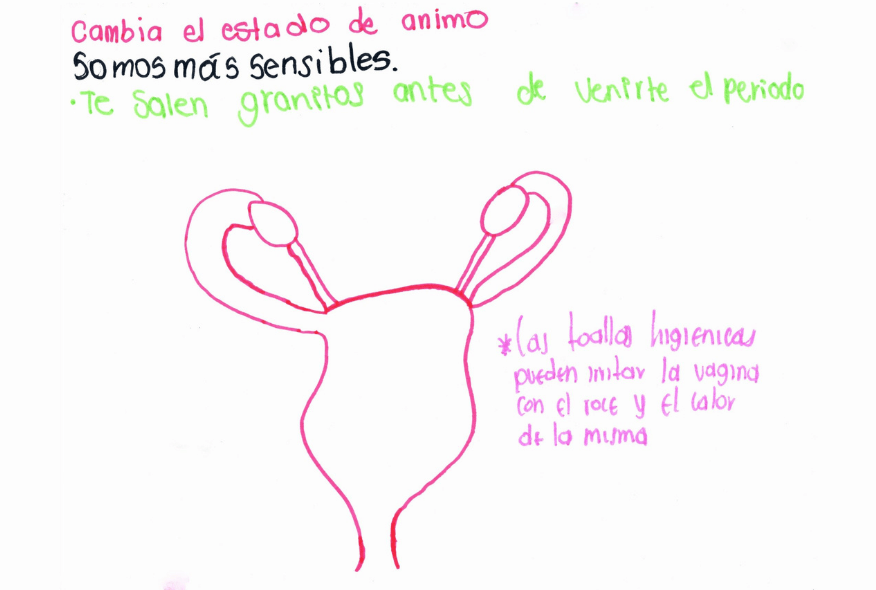 Cambia el estado de animo
Somos más sensibles.
·Te Salen granitos antes de venirte el periodo
*las toallas higienicas
pueden irritar la vagina
con el roce y el calor
de la misma